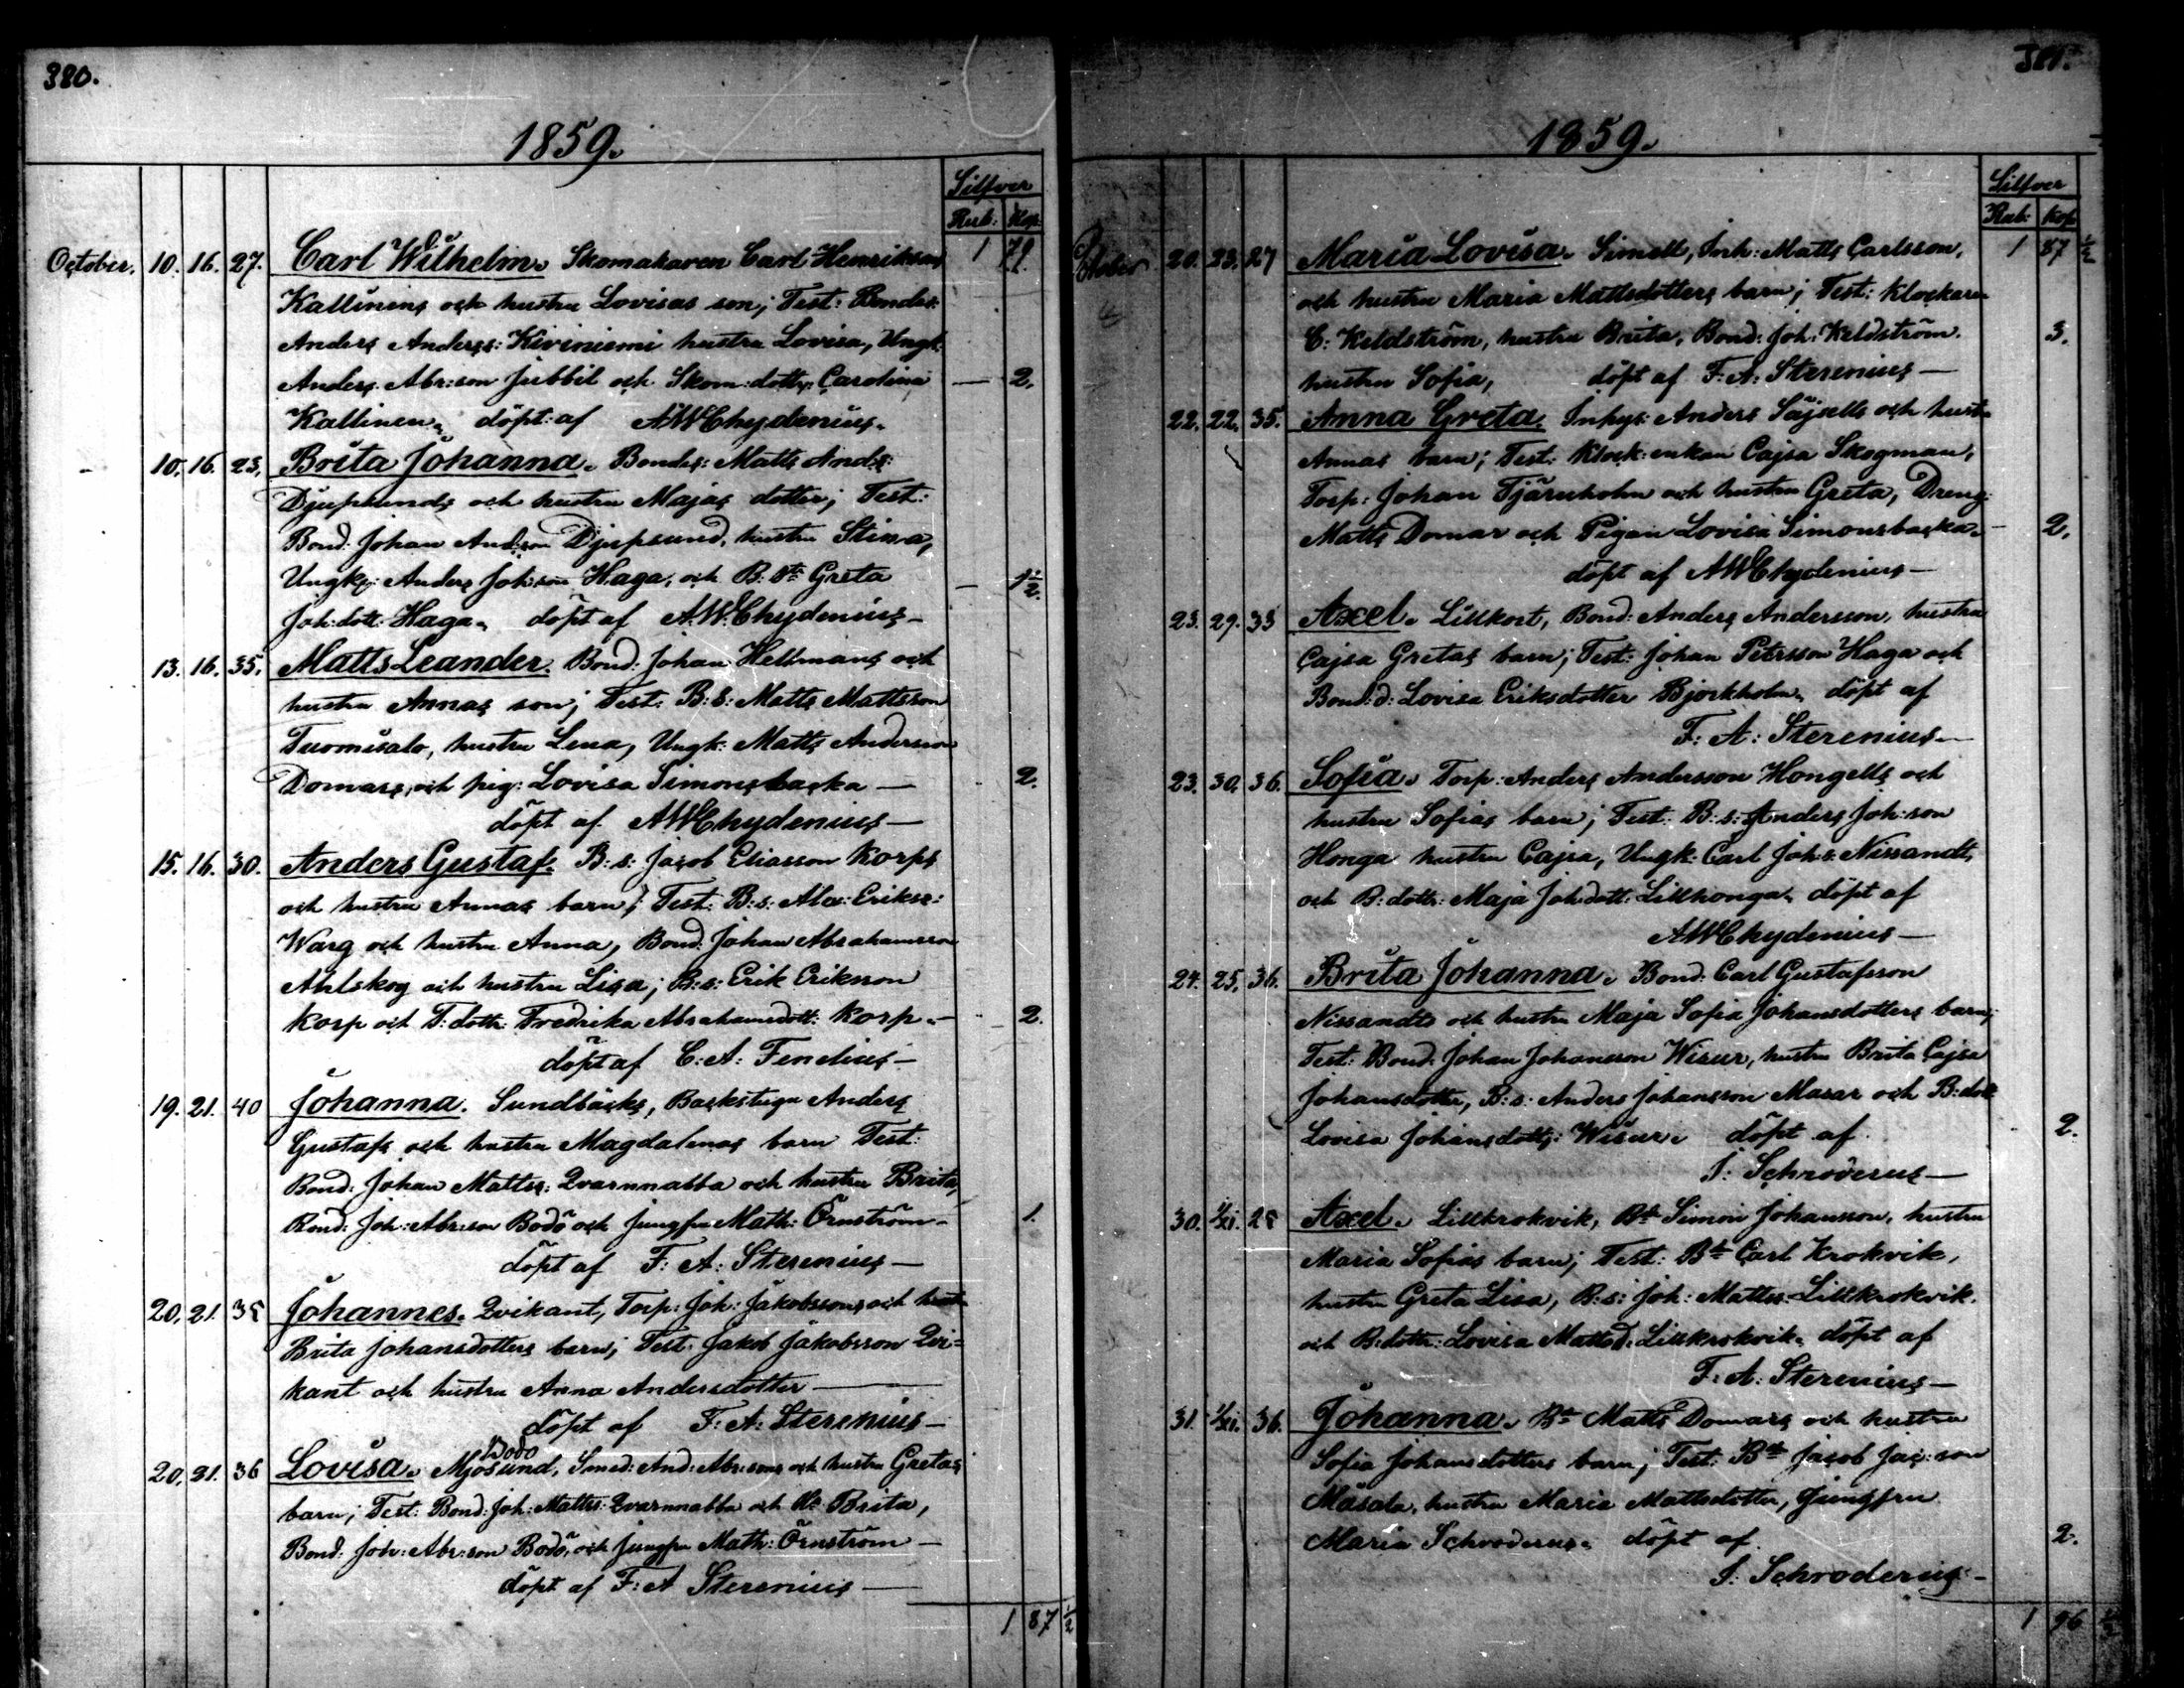 380.
1859.
Silfver
Rub: Kop
October. 10. 16. 27. Carl Wilhelm. Skomakaren Carl Henriksons 1 79.
Kallinens och hustru Lovisas son; Test: Bondes:
Anders Anderss: Kiviniemi hustru Lovisa, Ungk:
Anders Abr:son Jubbil och Skom:dottr: Carolina — 2.
Kallinen. döpt af AWChydenius.
10. 16. 23. Brita Johanna. Bondes: Matts Ands:
Djupsunds och hustru Majas dotter; Test:
Bond: Johan Andson Djupsund, hustru Stina,
Ungk: Anders Joh:son Haga, och B:dtr Greta — 1½.
Joh:dott: Haga. döpt af A.W.Chydenius —
13. 16. 35. Matts Leander. Bond: Johan Hellmans och
hustru Annas son; Test: B:s: Matts Mattsson
Tuomisalo, hustru Lena, Ungk: Matts Andersson
Domars, och pig: Lovisa Simonsbacka — 2.
döpt af AWChydenius —
15. 16. 30. Anders Gustaf. B:s: Jacob Eliasson Korps
och hustru Annas barn; Test: B:s: Alex: Erikss:
Warg och hustru Anna, Bond: Johan Abrahamsson
Ahlskog och hustru Lisa; B:s: Erik Eriksson
Korp och T:dottr: Fredrika Abrahamsdott: Korp. — 2.
döpt af C:A: Fenelius —
19. 21. 40 Johanna. Sundbäcks, Backstugu Anders
Gustafs och hustru Magdalenas barn Test:
Bond: Johan Matts: Qvarnnabba och hustru Brita,
Bond: Joh:Abr:son Bodö och Jungfru Math: Örnström — 1.
döpt af F: A: Sterenius —
20. 21. 35 Johannes. Qvikant, Torp: Joh: Jakobssons och hustru
Brita Johansdotters barn; Test: Jakob Jakobsson Qvi=
kant och hustru Anna Andersdotter —
döpt af F: A: Sterenius —
Bodö
20. 21. 36 Lovisa. Mjösund, Smed: And: Abr:sons och hustru Gretas
barn; Test: Bond: Joh: Matts: Qvarnnabba och H: Brita,
Bond: Joh: Abr:son Bodö, och Jungfru Math: Örnström —
döpt af F: A Sterenius —
1 87 ½
381.
1859.
Silfver
Rub: Kop
October 20. 23. 27 Maria Lovisa. Simell, Inh: Matts Carlsson, 1 87 ½
och hustru Maria Mattsdotters barn; Test: Klockaren
C: Keldström, hustru Brita, Bond: Joh: Keldström. 3.
hustru Sofia, döpt af F: A: Sterenius —
22. 22. 35. Anna Greta. Inhys: Anders Säjsells och hustru
Annas barn; Test: Klock:enkan Cajsa Skogman,
Torp: Johan Tjärnholm och hustru Greta, Dreng:
Matts Domar och Pigan Lovisa Simonsbacka — 2.
döpt af AWChydenius —
23. 29. 33 Axel. Lillkort, Bond: Anders Andersson, hustru
Cajsa Gretas barn; Test: Johan Petersson Haga och
Bond:d: Lovisa Eriksdotter Bjorkholm. döpt af
F: A: Sterenius —
23. 30. 36. Sofia. Torp: Anders Andersson Hongells och
hustru Sofias barn; Test: B:s: Anders Joh:son
Honga hustru Cajsa, Ungk: Carl Joh:s: Nissandt,
och B:dottr: Maja Joh:dott: Lillhonga. döpt af
AWChydenius —
24. 25. 36. Brita Johanna. Bond: Carl Gustafsson
Nissandts och hustru Maja Sofia Johansdotters barn;
Test: Bond: Johan Johansson Wisur, hustru Brita Cajsa
Johansdotter, B:s: Anders Johansson Masar och B:dott
Lovisa Johansdottr: Wisur. döpt af 2.
I: Schroderus —
30. 1/XI. 28 Axel. Lillkrokvik, Bd Simon Johansson, hustru
Maria Sofias barn; Test: Bd Carl Krokvik,
hustru Greta Lisa, B:s: Joh: Matts: Lillkrokvik.
och B:dottr: Lovisa Mattsd: Lillkrokvik. döpt af
F: A: Sterenius —
31. 1/XI. 36. Johanna. Bd Matts Domars och hustru
Sofia Johansdotters barn; Test: Bd Jacob Jac:son
Måsala, hustru Maria Mattsdotter, Jungfru
Maria Schroderus. döpt af 2.
I: Schroderus —
1 96 ½